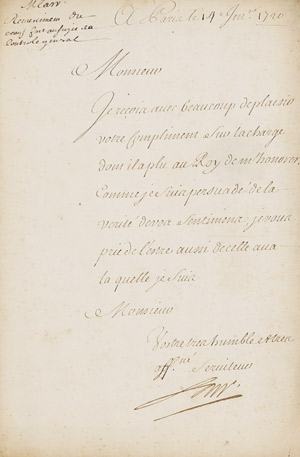 M Law
Remerciement du
compl fait au sujet du
Controle general
A Paris le 14 Janv. 1720
Monsieur
Je reçois avec beaucoup de plaisir
votre Compliment sur la charge
dont il a plu au Roy de m'honorer
Comme je suis persuadé de la
verité de vos Sentimens, je vous
prie de l'estre aussi de celle avec
la quelle je suis
Monsieur
Vostre tres humble et tres
aff.né Serviteur
Law